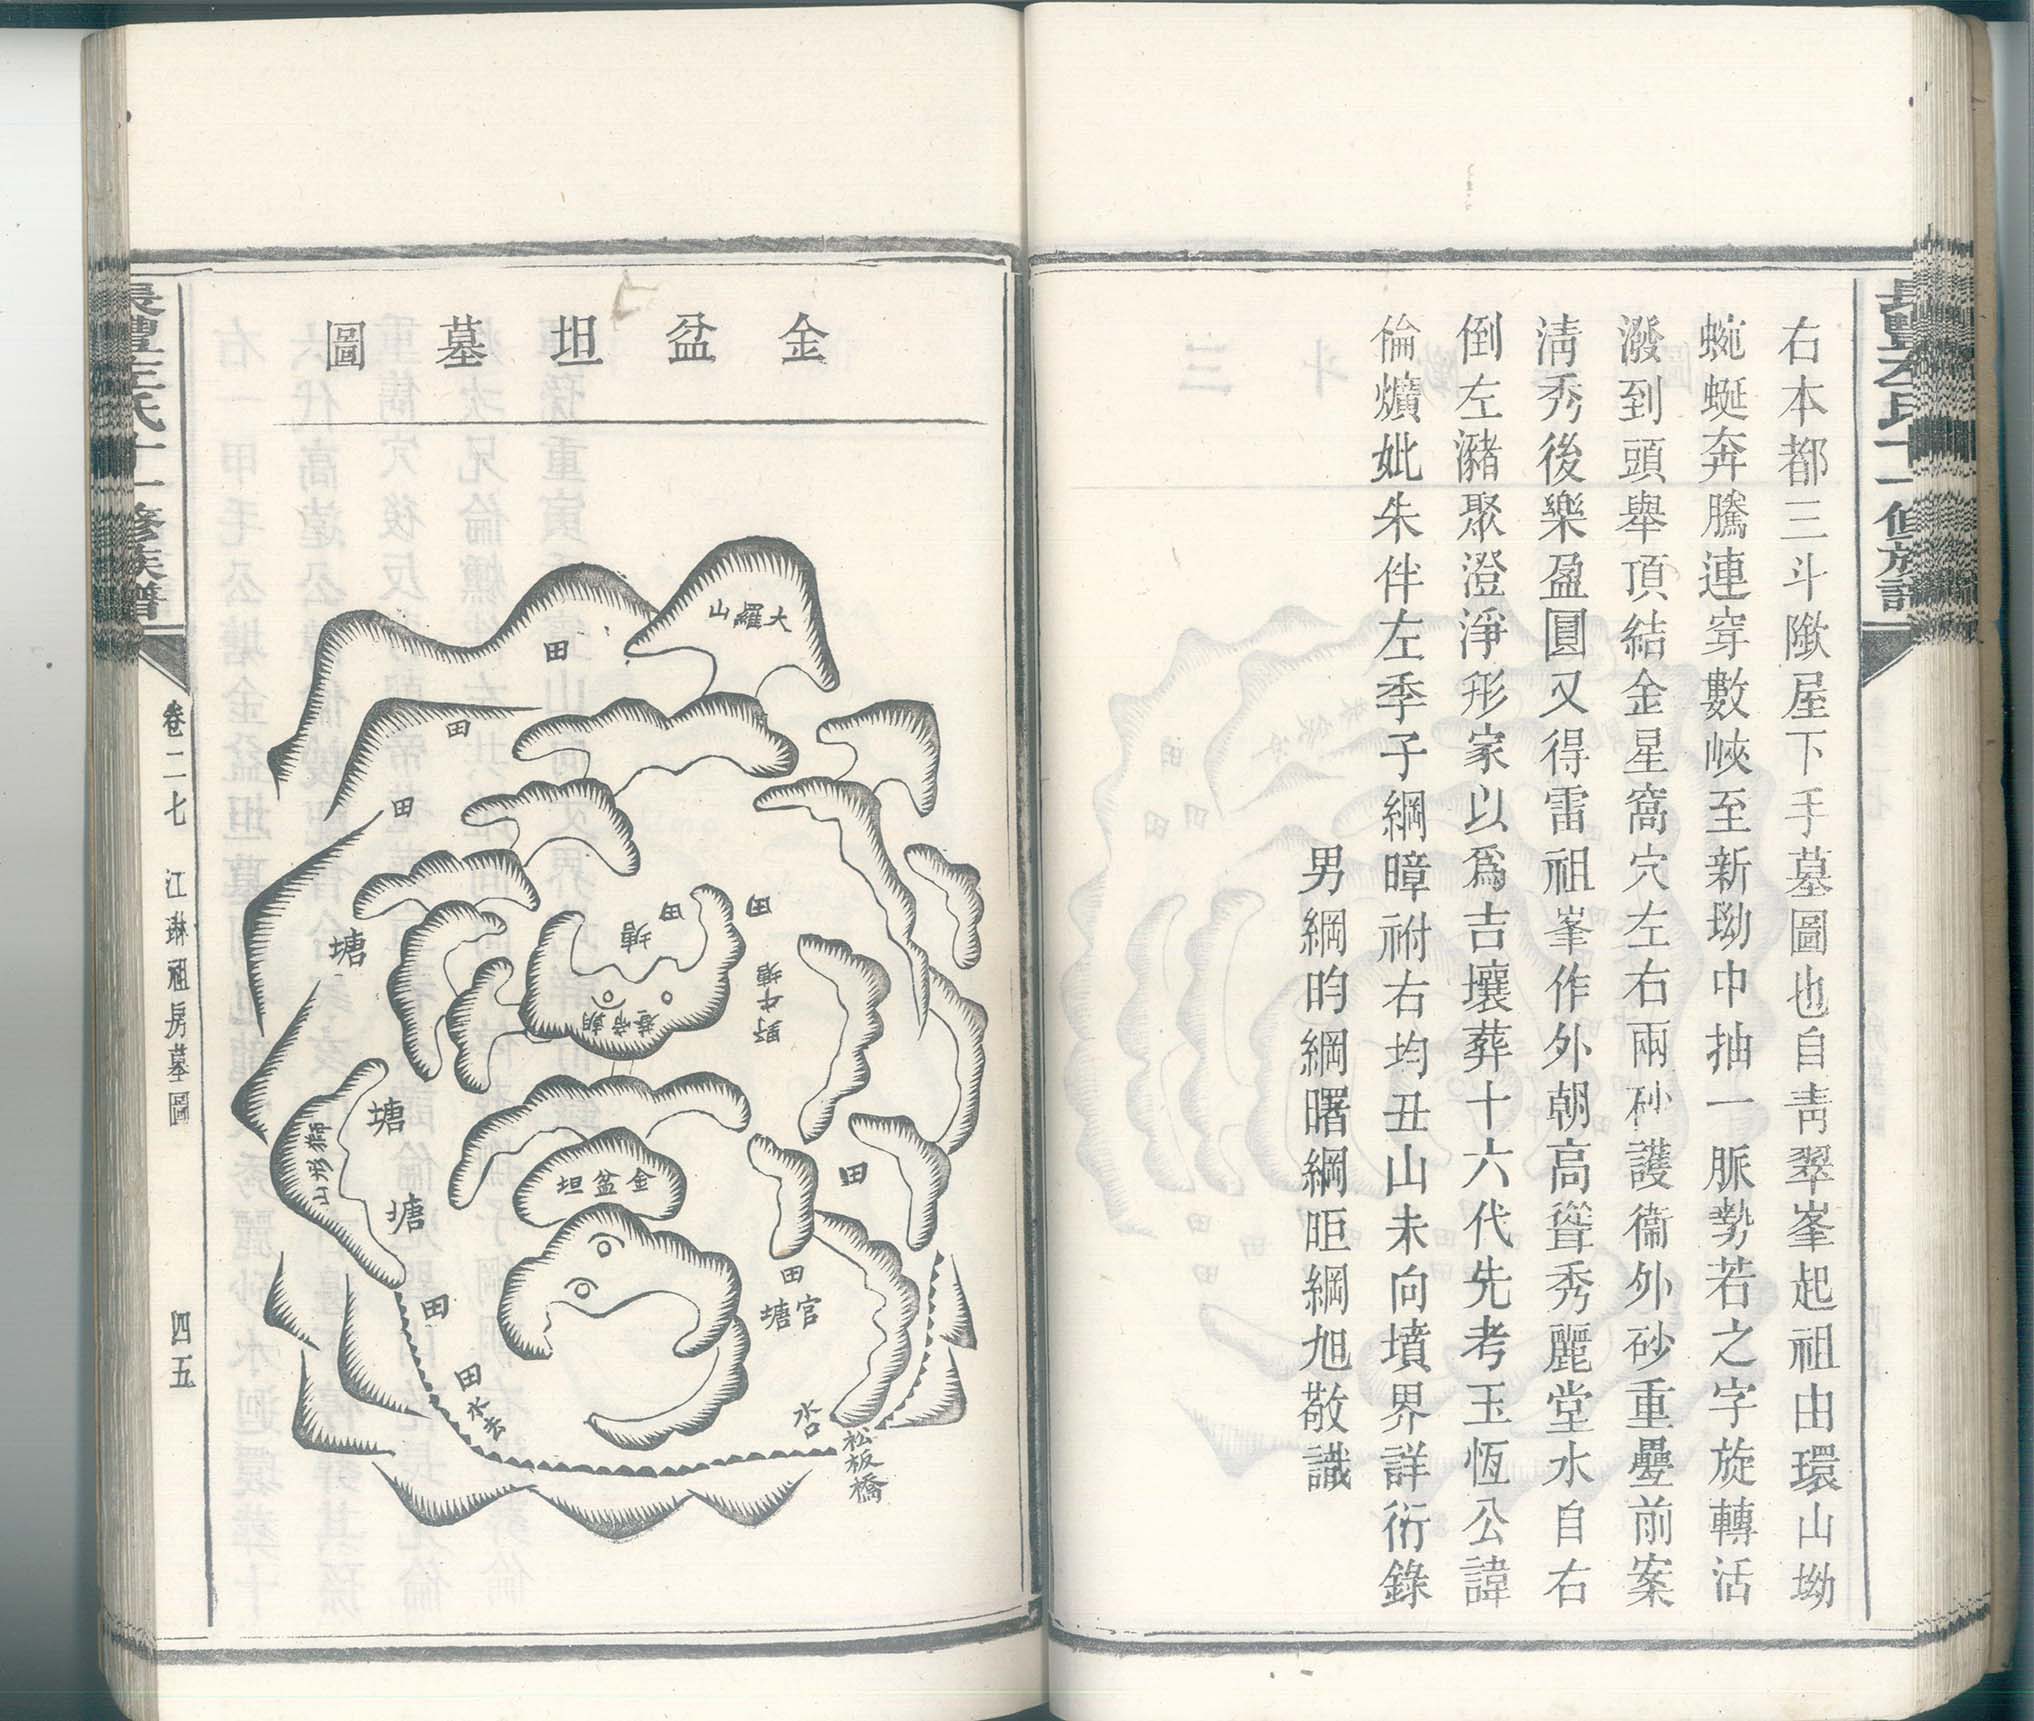 右本都三斗隞屋下手墓圖也自靑翠峯起祖由環山坳
蜿蜒奔騰連穿數峽至新坳中抽一脈勢若之字旋轉活
潑到頭舉頂結金星窩穴左右兩砂護衞外砂重疊前案
淸秀後樂盈圓又得雷祖峯作外朝高聳秀麗堂水自右
倒左瀦聚澄淨形家以爲吉壤葬十六代先考玉恆公諱
倫爌妣朱伴左季子綱暐祔右均丑山未向墳界詳衍錄
男綱昀綱曙綱昛綱旭敬識
金盆坦墓圖
大羅山
田
田
田
塘
田
田
塘
朝帝巷
野牛塘
塘
塘
山
金盆坦
田
田
官塘
田
田
水去
水口
松板橋
氏十一修族譜
卷二七
江琳祖房墓圖
四五